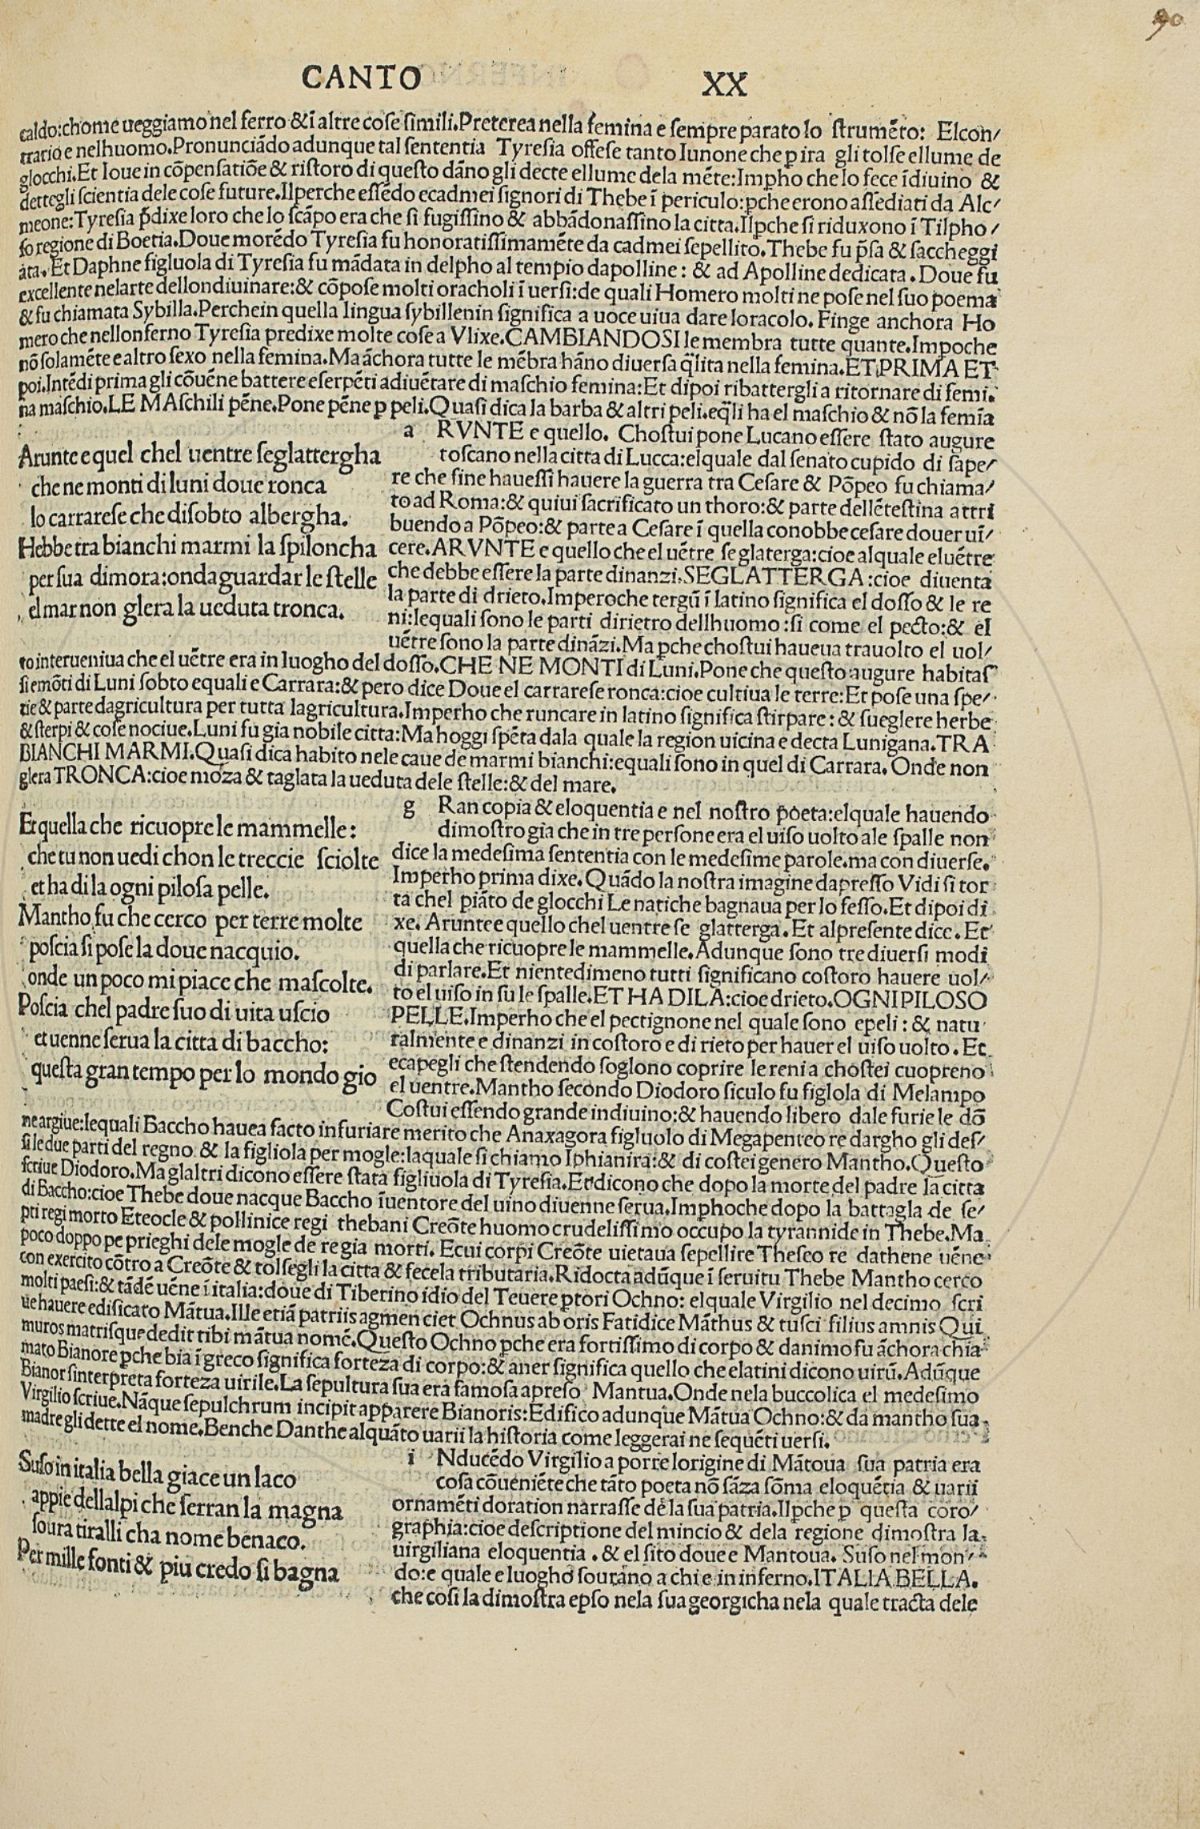 90
CANTO XX
caldo:chome ueggiamo nel ferro & ĩ altre cose simili.Preterea nella femina e sempre parato lo strumẽto: Elcon/
trario e nelhuomo.Pronunciãdo adunque tal sententia Tyresia offese tanto Iunone che p ira gli tolse ellume de
glocchi.Et Ioue in cõpensatiõe & ristoro di questo dãno gli decte ellume dela mẽte:Impho che lo fece ĩdiuino &
dettegli scientia dele cose future.Ilperche essẽdo ecadmei signori di Thebe ĩ periculo:pche erono assediati da Alc/
meone:Tyresia p̃dixe loro che lo scãpo era che si fugissino & abbãdonassino la citta.Ilpche si riduxono ĩ Tilpho/
so regione di Boetia.Doue morẽdo Tyresia fu honoratissimamẽte da cadmei sepellito.Thebe fu p̃sa & saccheggi
ata.Et Daphne figluola di Tyresia fu mãdata in delpho al tempio dapolline: & ad Apolline dedicata.Doue fu
excellente nelarte dellondiuinare:& cõpose molti oracholi ĩ uersi:de quali Homero molti ne pose nel suo poema
& fu chiamata Sybilla.Perchein quella lingua sybillenin significa a uoce uiua dare loracolo. Finge anchora Ho
mero che nellonferno Tyresia predixe molte cose a Vlixe.CAMBIANDOSI le membra tutte quante.Impoche
nõ solamẽte e altro sexo nella femina.Ma ãchora tutte le mẽbra hãno diuersa q̃lita nella femina.ET PRIMA ET
poi.Intẽdi prima gli cõuẽne battere e serpẽti adiuẽtare di maschio femina:Et dipoi ribattergli a ritornare di femi.
na maschio.LE MAschili pẽne.Pone pẽne p peli.Quasi dica la barba & altri peli.eq̃li ha el maschio & nõ la femia
Arunte e quel chel uentre seglattergha
che ne monti di luni doue ronca
lo carrarese che disobto albergha.
Hebbe tra bianchi marmi la spiloncha
per sua dimora:onda guardar le stelle
el mar non glera la ueduta tronca.
a RVNTE e quello. Chostui pone Lucano essere stato augure
toscano nella citta di Lucca:elquale dal senato cupido di sape/
re che fine hauessi hauere la guerra tra Cesare & Põpeo fu chiama/
to ad Roma:& quiui sacrificato un thoro:& parte dellẽtestina attri
buendo a Põpeo:& parte a Cesare ĩ quella conobbe cesare douer uĩ/
cere.ARVNTE e quello che el uẽtre se glaterga:cioe al quale el uẽtre
che debbe essere la parte dinanzi.SEGLATTERGA:cioe diuenta
la parte di drieto.Imperoche tergũ ĩ latino significa el dosso & le re
ni:lequali sono le parti dirietro dellhuomo:si come el pecto:& el
uẽtre sono la parte dinãzi.Ma pche chostui haueua trauolto el uol/
to interueniua che el uẽtre era in luogho del dosso.CHE NE MONTI di Luni.Pone che questo augure habitas
si emõti di Luni sobto equali e Carrara:& pero dice Doue el carrarese ronca:cioe cultiua le terre:Et pose una spe/
tie & parte dagricultura per tutta lagricultura.Imperho che runcare in latino significa stirpare:& sueglere herbe
& sterpi & cose nociue.Luni fu gia nobile citta:Ma hoggi spẽta dala quale la region uicina e decta Lunigana.TRA
BIANCHI MARMI.Quasi dica habito nele caue de marmi bianchi:equali sono in quel di Carrara.Onde non
glera TRONCA:cioe moza & taglata la ueduta dele stelle:& del mare.
Et quella che ricuopre le mammelle:
che tu non uedi chon le treccie sciolte
et ha di la ogni pilosa pelle.
Mantho fu che cerco per terre molte
poscia si pose la doue nacquio.
onde un poco mi piace che mascolte.
Poscia chel padre suo di uita uscio
et uenne serua la citta di baccho:
questa gran tempo per lo mondo gio
g Ran copia & eloquentia e nel nostro poeta:elquale hauendo
dimostro gia che in tre persone era el uiso uolto ale spalle non
dice la medesima sententia con le medesime parole.ma con diuerse.
Imperho prima dixe.Quãdo la nostra imagine dapresso Vidi si tor
ta chel piãto de glocchi Le natiche bagnaua per lo fesso.Et dipoi di
xe. Arunte e quello chel uentre se glatterga. Et alpresente dice. Et
quella che ricuopre le mammelle.Adunque sono tre diuersi modi
di parlare.Et nientedimeno tutti significano costoro hauere uol/
to el uiso in su le spalle.ET HA DILA:cioe drieto.OGNI PILOSO
PELLE.Imperho che el pectignone nel quale sono epeli:& natu
ralmente e dinanzi in costoro e di rieto per hauer el uiso uolto. Et
ecapegli che stendendo soglono coprire le reni a chostei cuopreno
el uentre.Mantho secondo Diodoro siculo fu figlola di Melampo
Costui essendo grande indiuino:& hauendo libero dale furie le dõ
ne argiue:lequali Baccho hauea facto infuriare merito che Anaxagora figluolo di Megapenteo re dargho gli des/
si le due parti del regno & la figliola per mogle:laquale si chiamo Iphianira:& di costei genero Mantho.Questo
scriue Diodoro.Ma glaltri dicono essere stata figliuola di Tyresia.Et dicono che dopo la morte del padre la citta
di Baccho:cioe Thebe doue nacque Baccho ĩuentore del uino diuenne serua.Imphoche dopo la battagla de se/
pti regi morto Eteocle & pollinice regi thebani Creõte huomo crudelissimo occupo la tyrannide in Thebe.Ma
poco doppo pe prieghi dele mogle de regia morti. Ecui corpi Creõte uietaua sepellire Theseo re dathene uẽne
con exercito cõtro a Creõte & tolsegli la citta & fecela tributaria.Ridocta adũque ĩ seruitu Thebe Mantho cerco
molti paesi:& tãdẽ uẽne ĩ italia:doue di Tiberino idio del Teuere ptori Ochno:elquale Virgilio nel decimo scri
ue hauere edificato Mãtua.Ille etiã patriis agmen ciet Ochnus ab oris Fatidice Mãthus & tusci filius amnis Qui
muros matrisque dedit tibi mãtua nomẽ.Questo Ochno pche era fortissimo di corpo & danimo fu ãchora chia
mato Bianore pche bia ĩ greco significa forteza di corpo:& aner significa quello che elatini dicono uirũ.Adũque
Bianor sinterpreta forteza uirile.La sepultura sua era famosa apreso Mantua.Onde nela buccolica el medesimo
Virgilio scriue.Nãque sepulchrum incipit apparere Bianoris:Edifico adunque Mãtua Ochno:& da mantho sua
madre gli dette el nome.Benche Danthe alquãto uarii la historia come leggerai ne sequẽti uersi.
Suso in italia bella giace un laco
appie dellalpi che serran la magna
soura tiralli cha nome benaco.
Per mille fonti & piu credo si bagna
i Nducẽdo Virgilio a porre lorigine di Mãtoua sua patria era
cosa cõueniẽte che tãto poeta nõ sãza sõma eloquẽtia & uarii
ornamẽti doration narrasse de la sua patria.Ilpche p questa coro/
graphia:cioe descriptione del mincio & dela regione dimostra la
uirgiliana eloquentia.& el sito doue e Mantoua. Suso nel mon/
do:e quale e luogho sourano a chi e in inferno.ITALIA BELLA.
che cosi la dimostra epso nela sua georgicha nela quale tracta dele